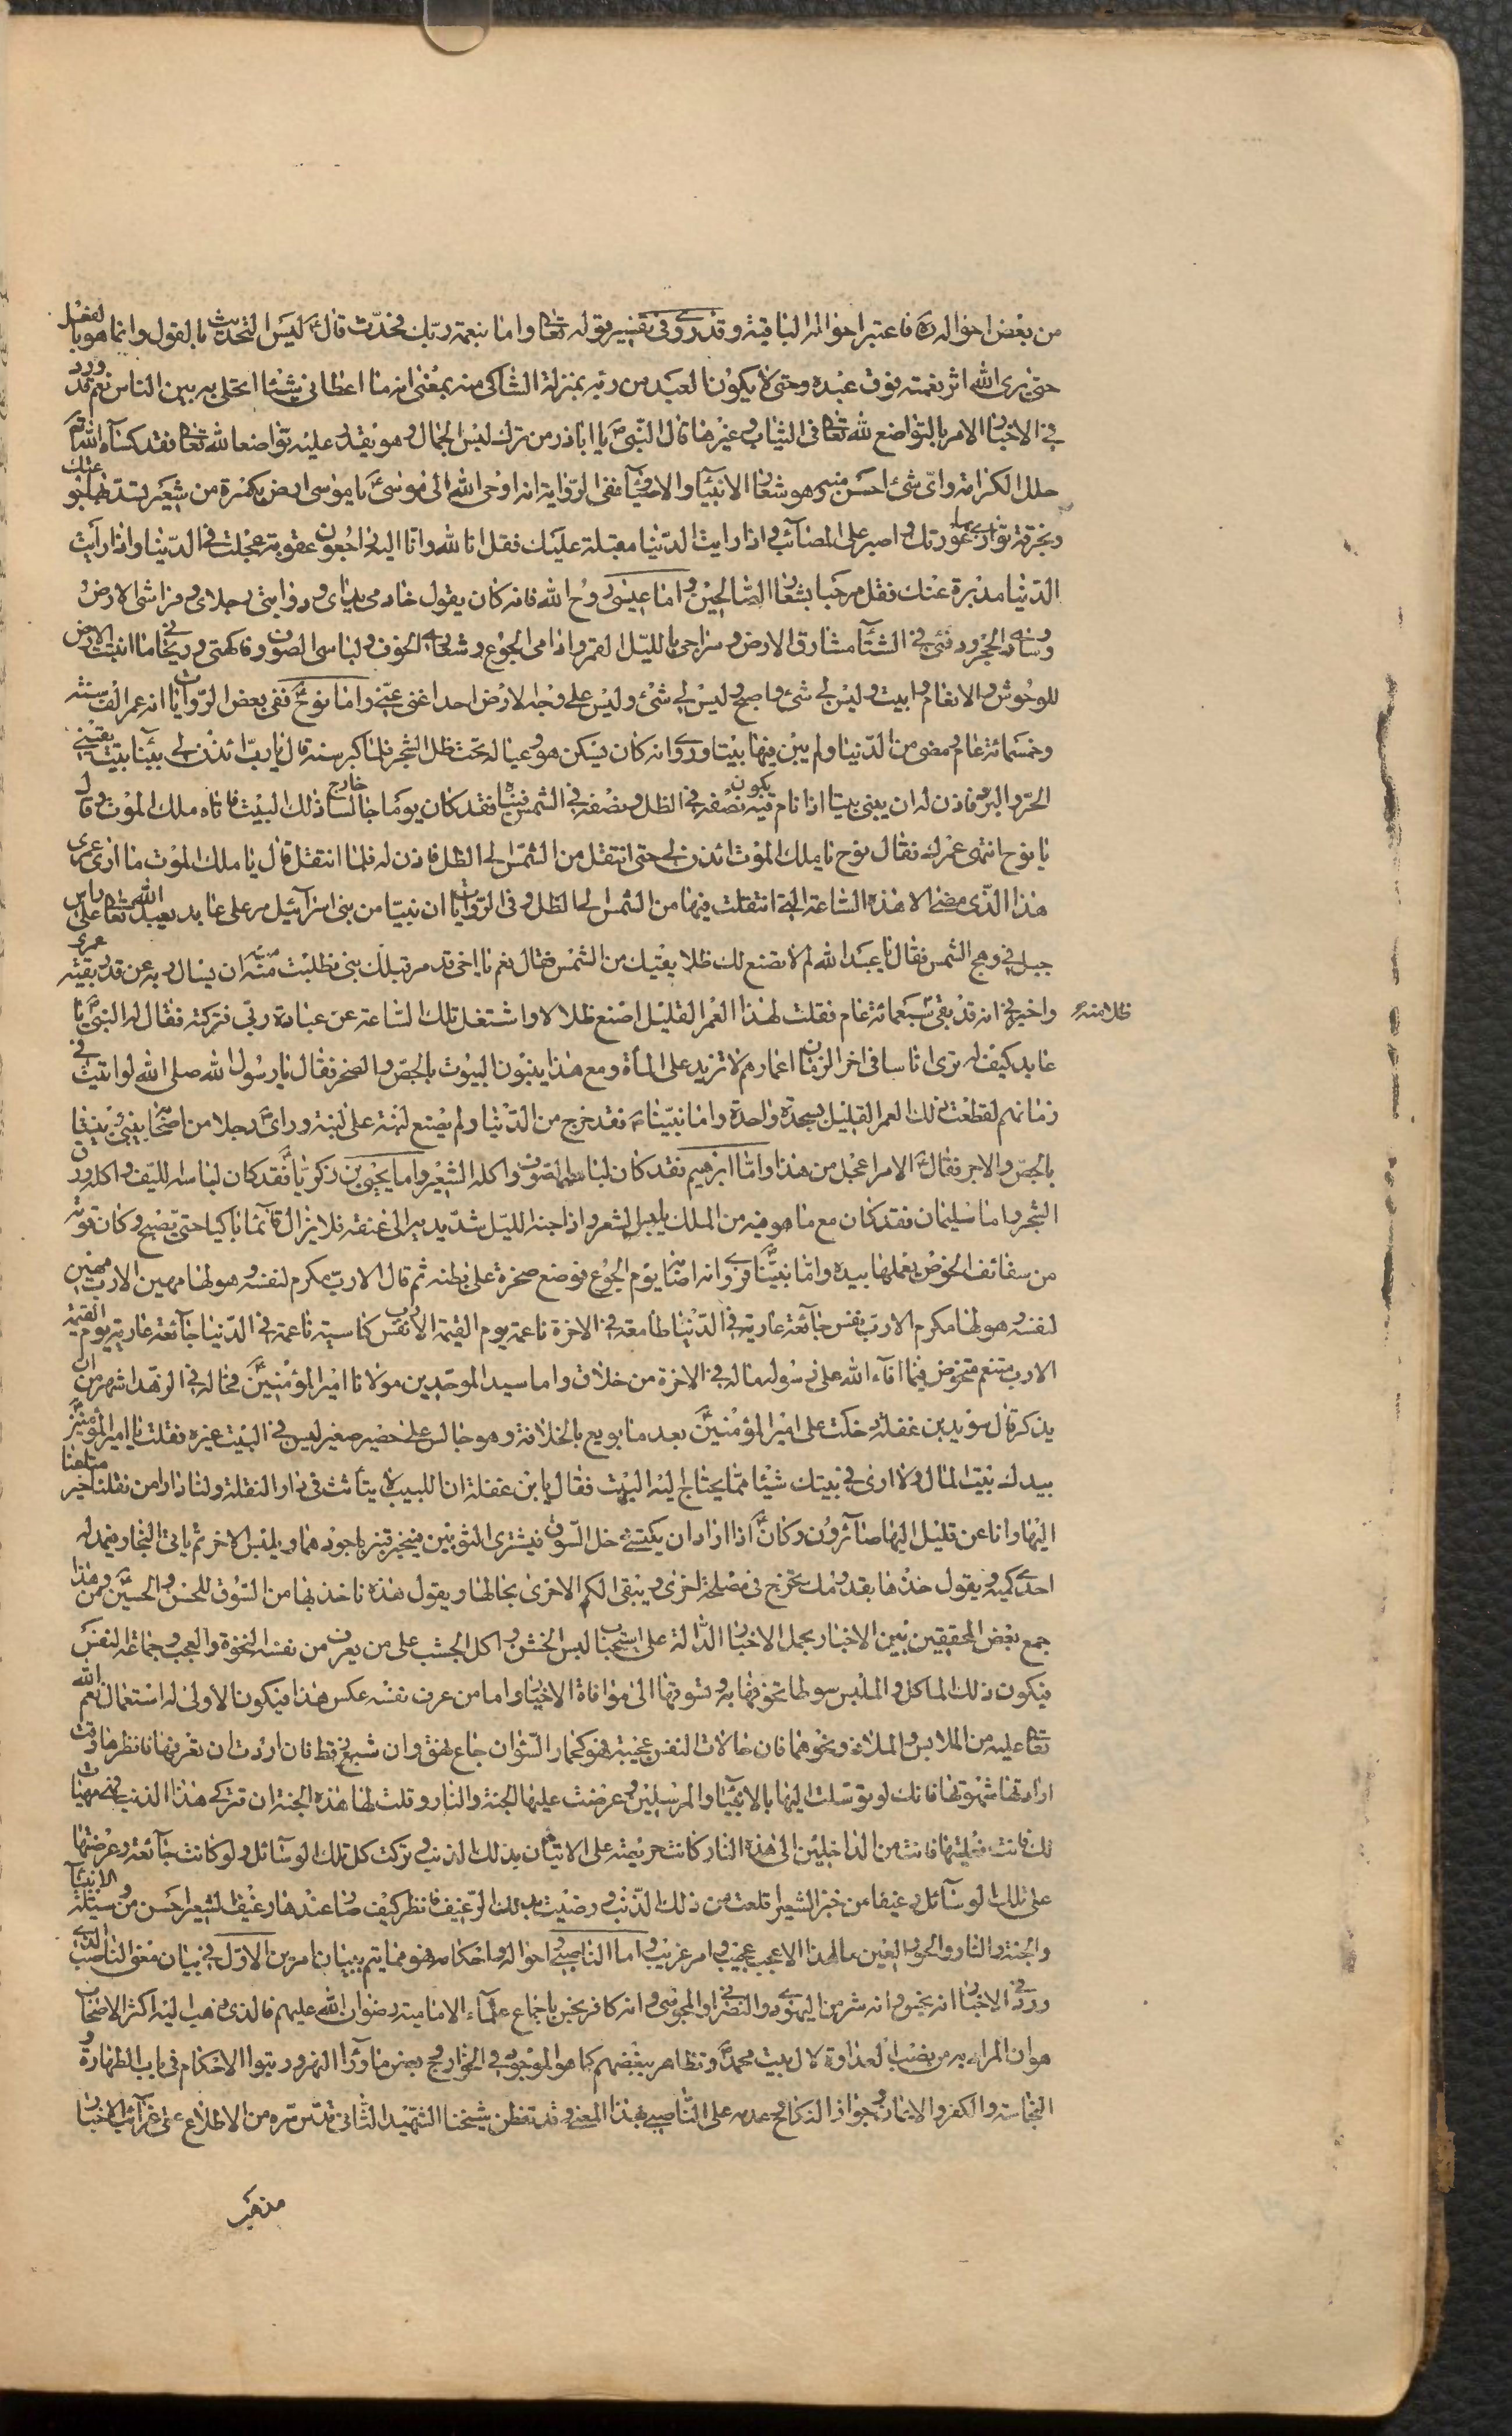 من بعض احواله ره فاعتبر احواله الباقية وقد روى فى تفسير قوله تعالى واما بنعمة ربك فحدث قال ع ليس التحديث بالقول وانما هو بالفعل
حتى يرى الله اثر نعمته فوق عبده وحتى لا يكون العبد من ربه بمنزلة الشاكى منه بمعنى انه ما اعطانى شيئا اتحلى به بين الناس نعم قد ورد
فى الاخبار الامر بالتواضع لله تعالى فى الثياب وغيرها قال النبى ص يا اباذر من ترك لبس الجمال وهو يقدر عليه تواضعا لله تعالى فقد كساه الله
حلل الكرامة واى شئ احسن منه وهو شعار الانبياء والاوصياء ففى الرواية انه اوحى الله الى موسى ع يا موسى ارض بكسرة من شعير تسد بها جوعتك
وبخرقة توارى بها عورتك واصبر على المصائب واذا رايت الدنيا مقبلة عليك فقل انا لله وانا اليه راجعون عقوبة عجلت فى الدنيا واذا رايت
الدنيا مدبرة عنك فقل مرحبا بشعار الصالحين واما عيسى روح الله فانه كان يقول خادمى يداى ودابتى رجلاى وفراشى الارض
ووسادى الحجر ودفئى فى الشتاء مشارق الارض وسراجى بالليل القمر وادامى الجوع وشعارى الخوف ولباسى الصوف وفاكهتى وريحانى ما انبتت الارض
للوحوش والانعام ابيت وليس لى شئ واصبح وليس لى شئ وليس على وجه الارض احد اغنى منى واما نوح ع ففى بعض الروايات انه عمر الف سنة
وخمسمائة عام ومضى من الدنيا ولم يبن فيها بيتا وروى انه كان يسكن هو وعياله تحت ظل الشجر فلما كبر سنه قال يا رب ائذن لى ببناء بيت يقينى
الحر والبرد فاذن له ان يبنى بيتا اذا نام فيه يكون نصفه فى الظل ونصفه فى الشمس فبناه فقد كان يوما جالسا خارج ذلك البيت فاتاه ملك الموت وقال
يا نوح انتهى عمرك فقال نوح يا ملك الموت ائذن لى حتى انتقل من الشمس الى الظل فاذن له فلما انتقل قال يا ملك الموت ما ارى عمرى
هذا الذى مضى الا هذه الساعة التى انتقلت فيها من الشمس الى الظل وفى الروايات ان نبيا من بنى اسرائيل مر على عابد يعبد الله تعالى على راس
جبل فى وهج الشمس فقال يا عبد الله لم لا تصنع لك ظلا يقيك من الشمس فقال نعم يا اخى قد مر قبلك نبى فطلبت منه ان يسال ربه عن قدر بقية عمرى
واخبرنى انه قد بقى سبعمائة عام فقلت لهذا العمر القليل اصنع ظلا لا واشتغل تلك الساعة عن عبادة ربى فتركته فقال له النبى ع يا
ظلا منه
عابد كيف لو ترى اناسا فى اخر الزمان اعمارهم لا تزيد على المأة ومع هذا يبنون البيوت بالجص والصخر فقال يا رسول الله صلى الله لو اتيت فى
زمانهم لقطعت ذلك العمر القليل بسجدة واحدة واما نبينا ص فقد خرج من الدنيا ولم يضع لبنة على لبنة وراى رجلا من اصحابه يبنى بيتا
بالجص والاجر فقال ص الامر اعجل من هذا واما ابراهيم فقد كان لباسه الصوف واكله الشعير واما يحيى بن زكريا ع فقد كان لباسه الليف واكله ورق
الشجر واما سليمان فقد كان مع ما هو فيه من الملك يلبس الشعر واذا جنه الليل شد يديه الى عنقه فلا يزال قائما باكيا حتى يصبح وكان قوته
من سفائف الخوص يعملها بيده واما نبينا ص فروى انه اصابه يوم الجوع فوضع صخرة على بطنه ثم قال الا رب مكرم لنفسه وهو لها مهين الا رب مهين
لنفسه وهو لها مكرم الا رب نفس جائعة عارية فى الدنيا طاعمة فى الاخرة ناعمة يوم القيمة الا رب نفس كاسية ناعمة فى الدنيا جائعة عارية يوم القيمة
الا رب متنعم متخوض فيما افاء الله على رسوله ما له فى الاخرة من خلاق واما سيد الموحدين مولانا امير المؤمنين ع فحاله فى الزهد اشهر من ان
يذكر قال سويد بن غفلة دخلت على امير المؤمنين ع بعد ما بويع بالخلافة وهو جالس على حصير صغير ليس فى البيت غيره فقلت يا امير المؤمنين
بيدك بيت المال ولا ارى فى بيتك شيئا مما يحتاج اليه البيت فقال يابن غفلة ان اللبيب لا يتأثث فى دار النقلة ولنا دار امن نقلنا خير متاعنا
اليها وانا عن قليل اليها صائرون وكان ع اذا اراد ان يكتسى دخل السوق فيشترى الثوبين فيخير قنبر باجودهما ويلبس الاخر ثم ياتى النجار فيمد له
احدى كميه ويقول خذها بقدومك تخرج فى مصلحة اخرى ويبقى الكم الاخرى بحالها ويقول هذه تاخذ بها من السوق للحسن والحسين ع ومن هذا
جمع بعض المحققين بين الاخبار بحمل الاخبار الدالة على استحباب لبس الخشن واكل الجشب على من يعرف من نفسه النخوة والعجب وجماعه النفس
فيكون ذلك الماكل والملبس سوطا يخوفها به ويسوقها الى موافاة الاخيار واما من عرف نفسه عكس هذا فيكون الاولى له استعمال نعم الله
تعالى عليه من الملابس والملاذ ونحوهما فان حالات النفس عجيبة فهو كحمار السوان جاع نهق وان شبع زقط فان اردت ان تعرفها فانظرها وقت
ارادتها شهوتها فانك لو توسلت اليها بالانبياء والمرسلين وعرضت عليها الجنة والنار وقلت لها هذه الجنة ان تتركى هذا الذنب فهى مهيات
لك وانت فعلتيها فانت من الداخلين الى هذه النار كانت حريصة على الاتيان بذلك الذنب وتركت كل تلك الوسائل ولو كانت جائعة وعرضتها
على تلك الوسائل رغيفا من خبز الشعير اقلعت من ذلك الذنب ورضيت بذلك الرغيف فانظر كيف صار عندها رغيف الشعير احسن من وسيلة الانبياء
والجنة والنار والحور العين ما لهذا الا عجب عجيب وامر غريب واما الناصبى واحواله واحكامه فهو مما يتم ببيان امرين الاول فى بيان معنى الناصب الذى
ورد فى الاخبار انه نجس وانه شر من اليهودى والنصرانى والمجوسى وانه كافر نجس باجماع علماء الامامية رضوان الله عليهم فالذى ذهب اليه اكثر الاصحاب
هو ان المراد به من نصب العداوة لال بيت محمد ص وتظاهر ببغضهم كما هو الموجود فى الخوارج وبعض ما وراء النهر ورتبوا الاحكام فى باب الطهارة و
النجاسة والكفر والايمان وجواز النكاح وعدمه على الناصبى بهذا المعنى وقد تفطن شيخنا الشهيد الثانى قدس سره من الاطلاع على غرائب الاخبار
مذهب